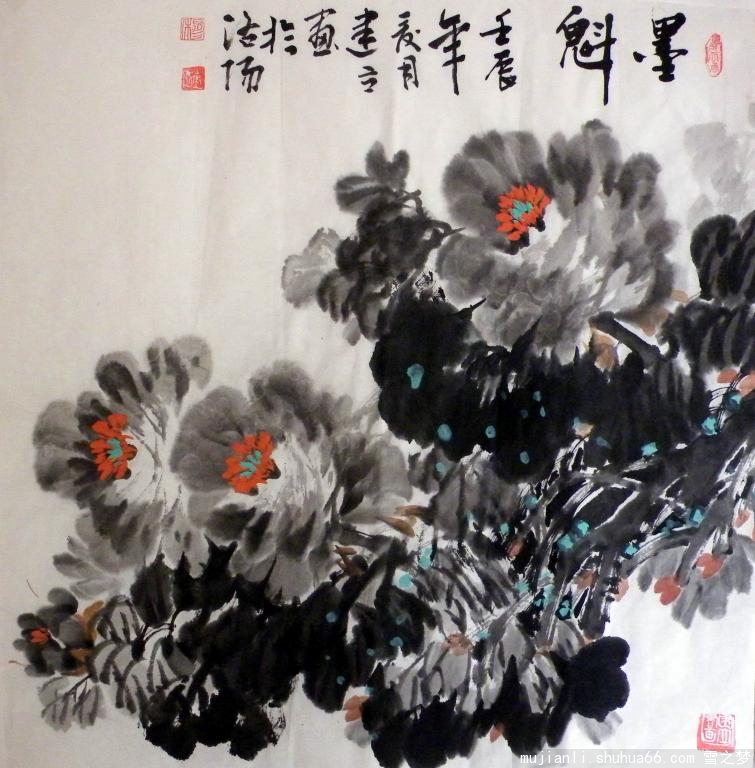 墨
魁
壬辰
年
夏月
建立
畫
於
洛陽
mujianli.shuhua66.com 雪之梦